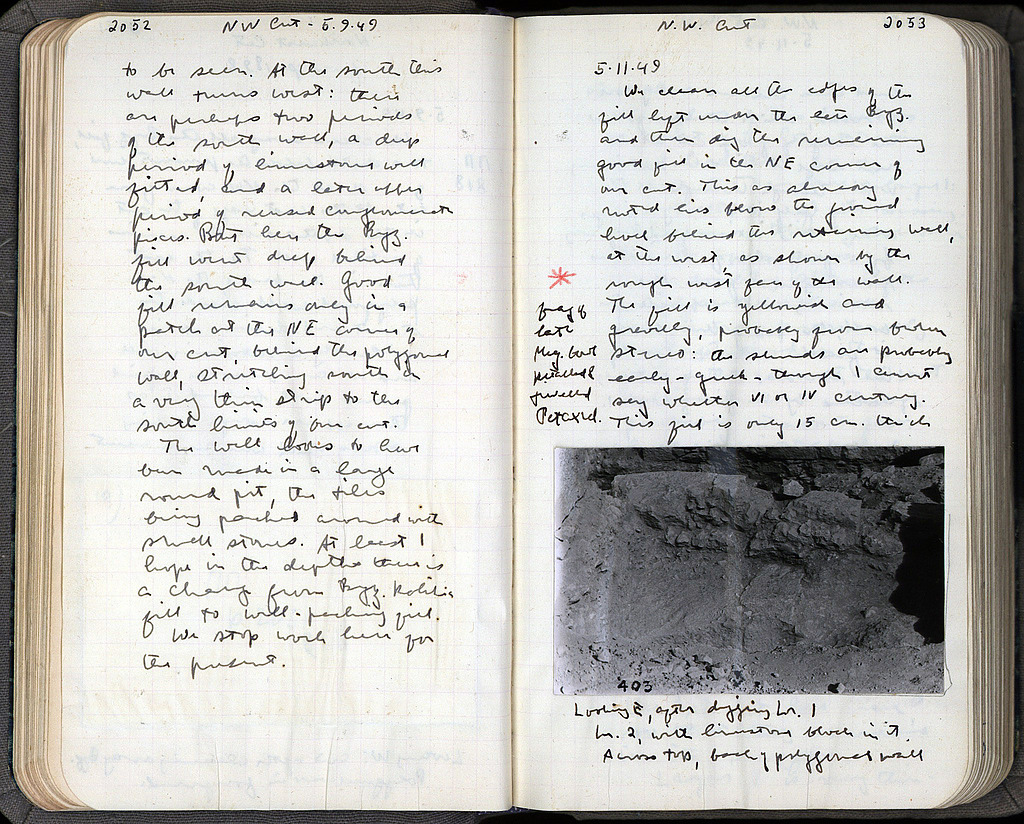 2052
NW Cut - 5.9.49
to be seen. At the south this
wall turns west: there
are perhaps two periods
of the south wall, a deep
period of limestone well
fitted, and a later upper
period of reused conglomerate
pieces. But here the Byz.
fill went deep behind
the south wall. Good
fill remains only in a
patch at the NE corner of
our cut, behind the polygonal
wall, stretching south in
a very thin strip to the
south limits of our cut.
The well looks to have
been made in a large
round pit, the tiles
being packed around with
small stones. At least I
hope in the depths there is
a change from Byz.
fill to well-packing fill.
We stop work here for
the present.
N.W. Cut
2053
5.11.49
We clean all the edges of the
fill left under the late Byz.
and then dig the remaining
good fill in the NE corner of
our cut. This as already
noted lies below the ground
level behind the retaining wall,
at the west, as shown by the
rough west face of the wall.
The fill is yellowish and
gravelly, probably from broken
stereo: the sherds are probably
early-Greek - though I cannot
say whether VI or IV century.
This fill is only 15 cm. thick
frag of
late
Meg. bowl
403
Looking E, after digging Lr. 1
Lr. 2, with limestone block in it.
Across top, back of polygonal wall